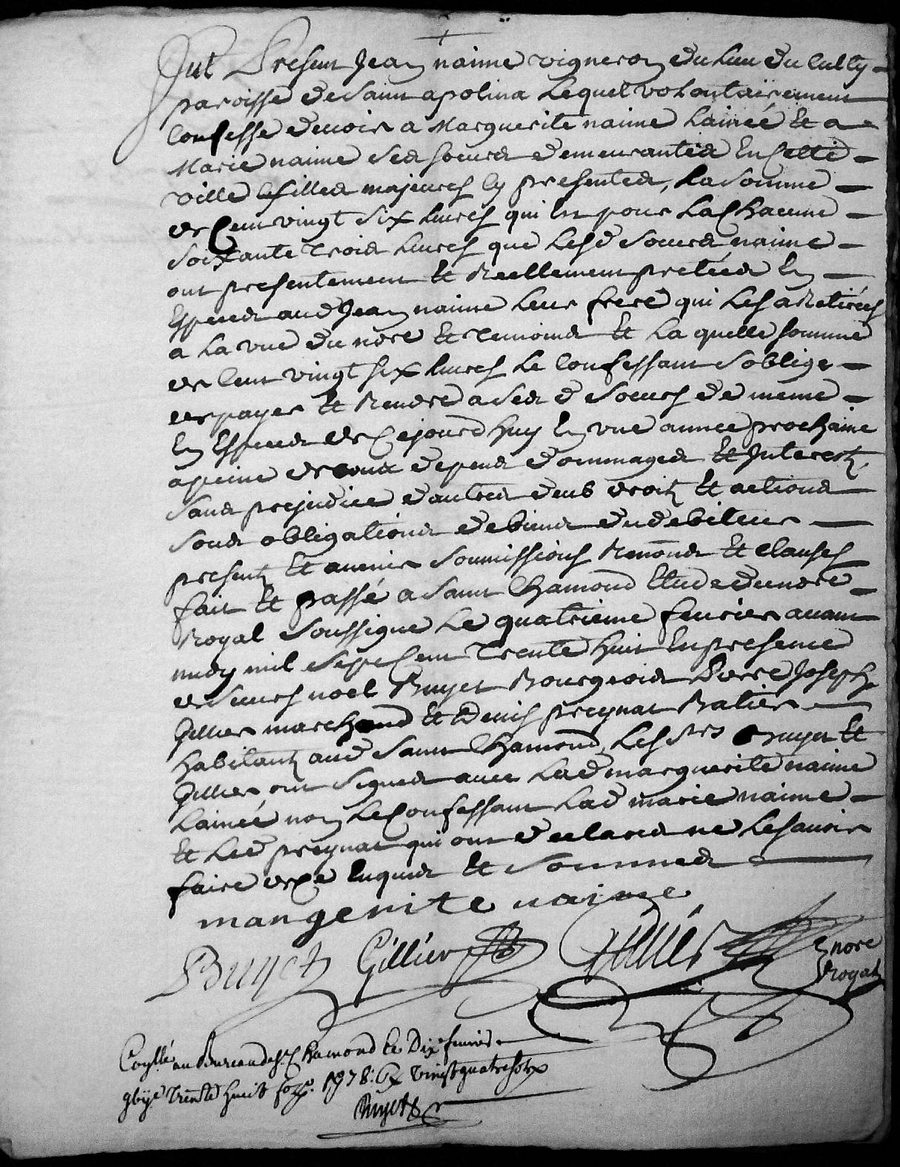 fut Present Jean naime vigneron du lieu du Culty
paroisse de Saint apolina lequel volontairement
Confesse devoir a Marguerite naime Lainée & a
Marie naime ses soeurs demeurantes En cette
ville filles majeures Cy presentes, La somme
de Cent vingt six livres qui est pour Chacune
soixante trois livres que lesd soeurs naime
ont presentement & Réellement pretées En
Especes aud Jean naime leur frere qui les a Retirées
a la vue du nore & temoins & la quelle somme
de Cent vingt six livres le Confessant s'oblige
de payer & Rendre a sesd soeurs de meme
En Especes de Cejourd huy En une année prochaine
a peine de tous depens dommages & Interests,
sans prejudice d'autres deub droits & actions
sous obligations de biens du debiteur
presents & avenir soumissions Renons & clauses
fait & passé a Saint Chamond Etude du nore
Royal soussigné le quatrieme fevrier avant
midy mil sept Cent trente huit En presence
de sieurs noel Buyet Bourgeois Pierre Joseph
Gillier marchand & denis preynat
habitants aud Saint Chamond, Les srs Buyet &
Gillier ont signés avec lad marguerite naime
Lainée non le Confessant lad marie naime
& led preynat qui ont declarés ne le savoir
faire de ce Enquis & sommés
margerite naime
Buyet Gillier
nore
Royal
Conllé au Bureau de St Chamond le Dix fevrier
trente huit vingt quatre sols
Buyet